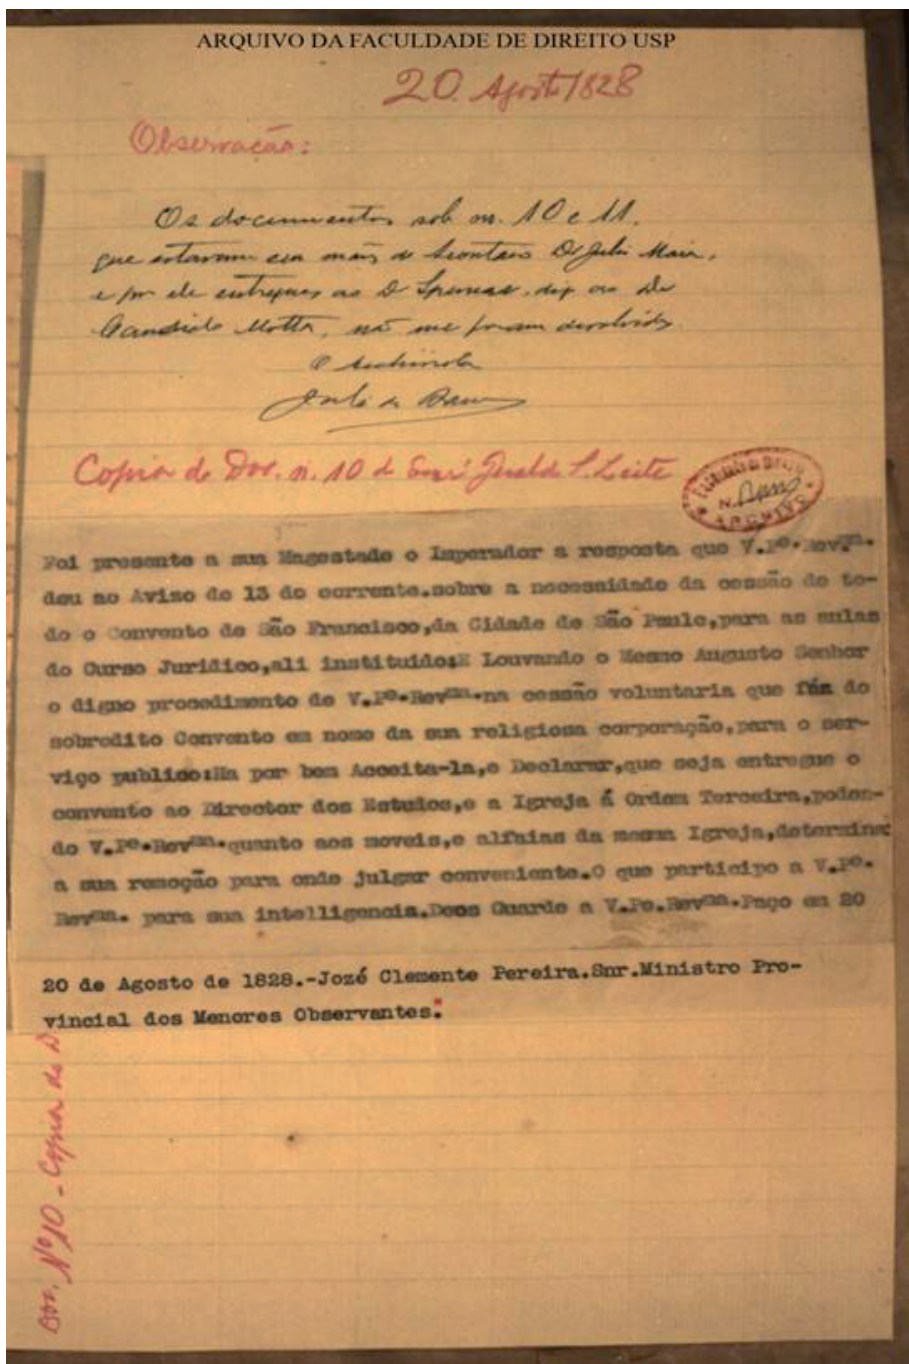 ARQUIVO DA FACULDADE DE DIREITO USP
20. Agosto 1828
Observação:
Os documentos sob nº. 10 e 11.
que estavam em mãos do Dr Julio Maia,
e por ele entregues ao Dr Spencer, ao Dr
Candido Motta, não me foram devolvidos.
O Archivista
Copia do Doc. n. 10 de Geraldo S. Leite
ARCHIVO
Foi presente a sua Magestade o Imperador a resposta que V.Pe.Revma.
deu ao Aviso de 13 do corrente.sobre a necessidade da cessão de to-
do o Convento de São Francisco,da Cidade de São Paulo,para as aulas
do Curso Juridico,ali instituido:E Louvando o Mesmo Augusto Senhor
o digno procedimento de V.Pe.Revma.na cessão voluntaria que fáz do
sobredito Convento em nome da sua religiosa corporação,para o ser-
viço publico:Ha por bem Acceita-la,e Declarar,que seja entregue o
convento ao Director dos Estudos,e a Igreja á Ordem Terceira,poden-
do V.Pe.Revma.quanto aos moveis,e alfaias da mesma Igreja,determinar
a sua remoção para onde julgar conveniente.O que participo a V.Pe.
Revma. para sua intelligencia.Deos Guarde a V.Pe.Revma.Paço em 20
20 de Agosto de 1828.-Jozé Clemente Pereira.Snr.Ministro Pro-
vincial dos Menores Observantes.
Doc. Nº10 - Copia do D